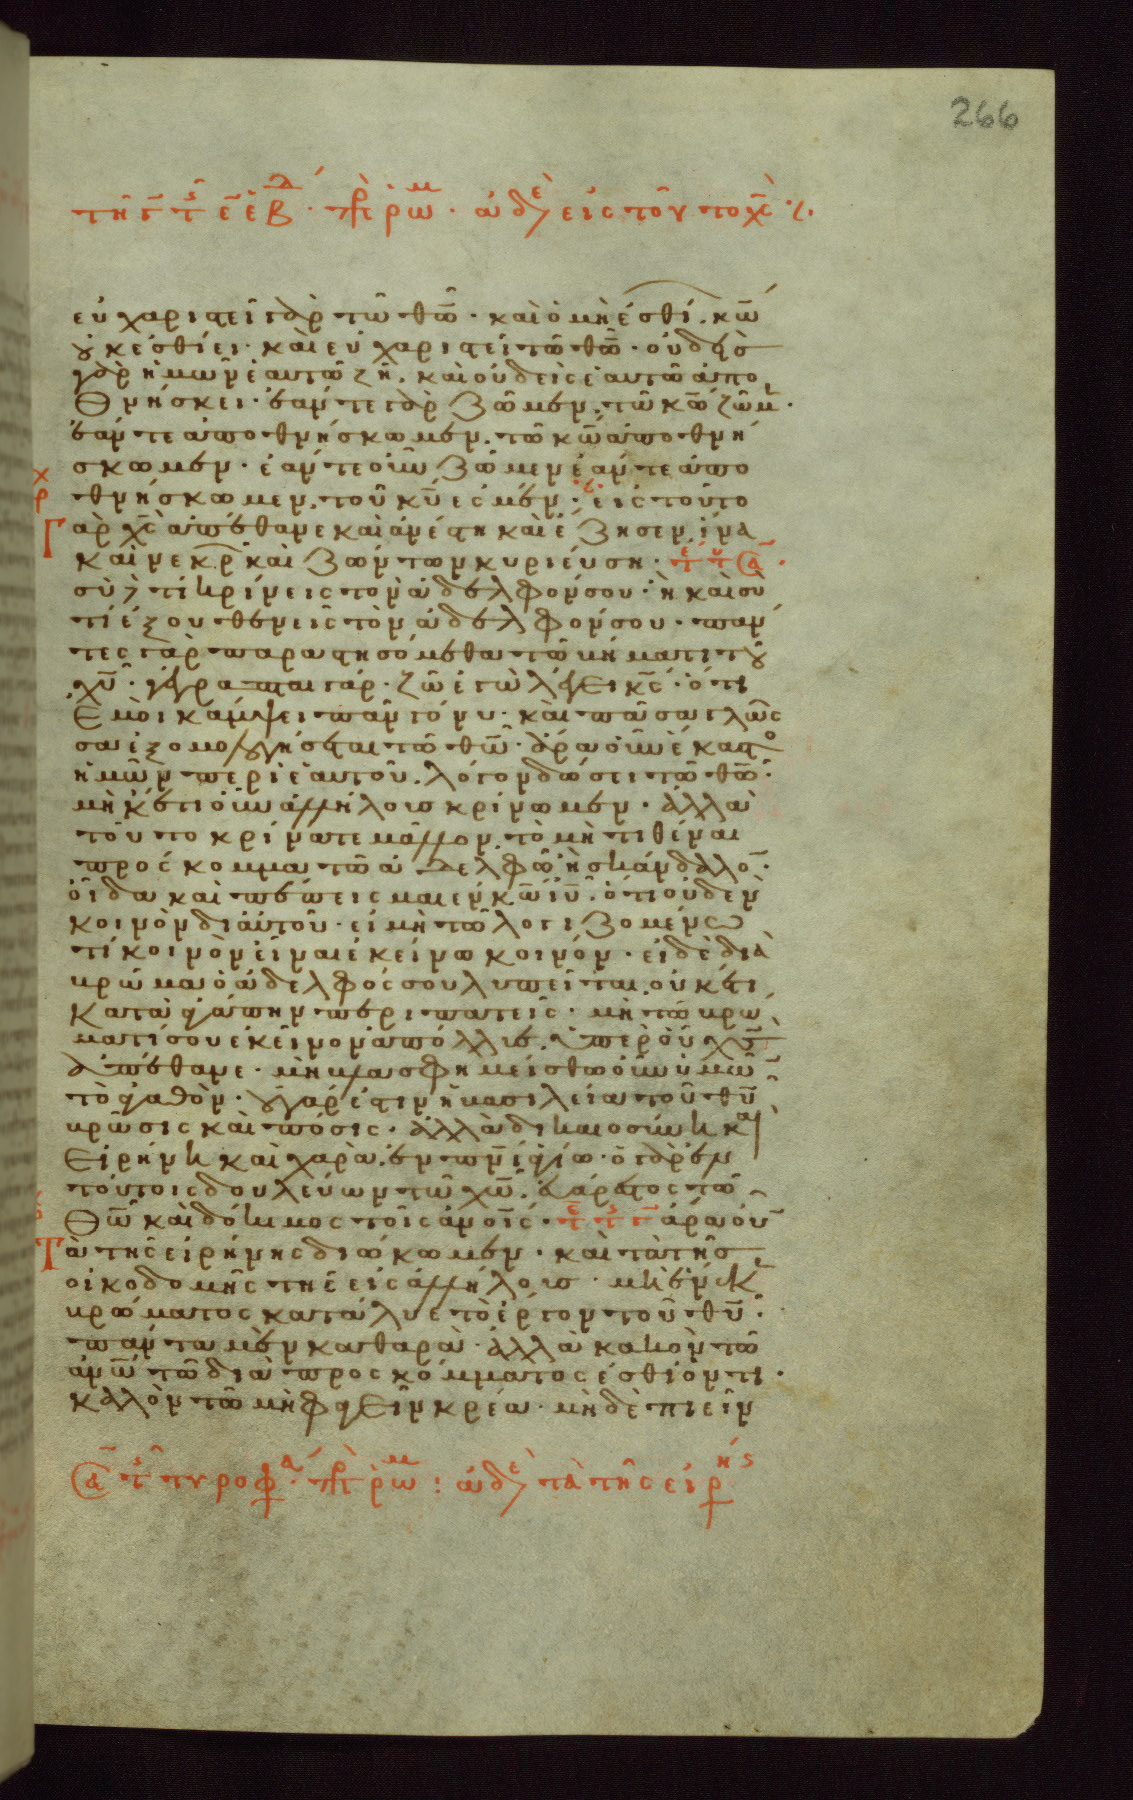 266
εὐχαριστεῖ γὰρ τῶ θ͞ω· καὶ ὁ μὴ ἐσθί, κ͞ω
οὐκ ἐσθίει· καὶ εὐχαριστεῖ τῶ θ͞ω· οὐδεὶς
γὰρ ἡμῶν ἑαυτῶ ζῆ. καὶ οὐδεὶς ἑαυτῶ ἀπο
θνήσκει· ἐάν τε γὰρ ζῶμεν, τῶ κ͞ω ζῶμ·
ἐάν τε ἀποθνήσκωμεν, τῶ κ͞ω ἀποθνή
σκωμεν· ἐάν τε οὖν ζῶμεν ἐάν τε ἀπο
θνήσκωμεν, τοῦ κ͞υ ἐσμέν· εἰς τοῦτο
γὰρ χ͞ς ἀπέθανε καὶ ἀνέστη καὶ ἔζησεν, ἵνα
καὶ νεκρ καὶ ζώντων κυριεύση·
σὺ τί κρίνεις τὸν ἀδελφόν σου· ἢ καὶ σὺ
τί ἐξουθενεῖς τὸν ἀδελφόν σου· πάν
τες γὰρ παραστησόμεθα τῶ βήματι τοῦ
χ͞υ· γέγραπται γάρ· ζῶ ἐγὼ λέγει κ͞ς· ὅτι
ἐμοὶ κάμψει πᾶν γόνυ· καὶ πᾶσα γλῶσ
σα ἐξομολογήσεται τῶ θ͞ω· ἄρα οὖν ἕκαστο
ἡμῶν περὶ ἑαυτοῦ, λόγον δώσει τῶ θ͞ω·
μηκέτι οὖν ἀλλήλους κρίνωμεν· ἀλλὰ
τοῦτο κρίνατε μᾶλλον, τὸ μὴ τιθέναι
πρόσκομμα τῶ ἀδελφῶ ἢ σκάνδαλο͞·
οἶδα καὶ πέπεισμαι ἐν κ͞ω ἰ͞υ· ὅτι οὐδὲν
κοινὸν δι αὐτοῦ· εἰ μὴ τῶ λογιζομένω
τί κοινὸν εἶναι ἐκείνω κοινόν· εἰ δὲ διὰ
βρῶμα ὁ ἀδελφός σου λυπεῖται, οὐκέτι
κατὰ ἀγάπην περιπατεῖς· μὴ τῶ βρώ
ματί σου ἐκεῖνον ἀπόλλυε, ὑπὲρ οὗ χ͞ς
ἀπέθανε· μὴ βλασφημείσθω οὖν ὑμῶ͞
τὸ ἀγαθόν· οὐ γάρ ἐστιν ἡ βασιλεία τοῦ θ͞υ
βρῶσις καὶ πόσις· ἀλλὰ δικαιοσύνη καὶ
εἰρήνη καὶ χαρὰ, ἐν πν͞ι ἁγίω· ὁ γὰρ ἐν
τούτοις δουλεύων τῶ χ͞ω, εὐάρεστος τῶ
θ͞ω καὶ δόκιμος τοῖς ἀνοις· ἄρα οὖ͞
τὰ τῆς εἰρήνης διώκωμεν· καὶ τὰ τῆς
οἰκοδομῆς τῆς εἰς ἀλλήλους· μὴ ἕνεκ͞
βρώματος κατάλυε τὸ ἔργον τοῦ θ͞υ·
πάντα μὲν καθαρά· ἀλλὰ κακὸν τῶ
ἀν͞ω τῶ διὰ προσκόμματος ἐσθίοντι·
καλὸν τῶ μὴ φαγεῖν κρέα· μηδὲ πιεῖν